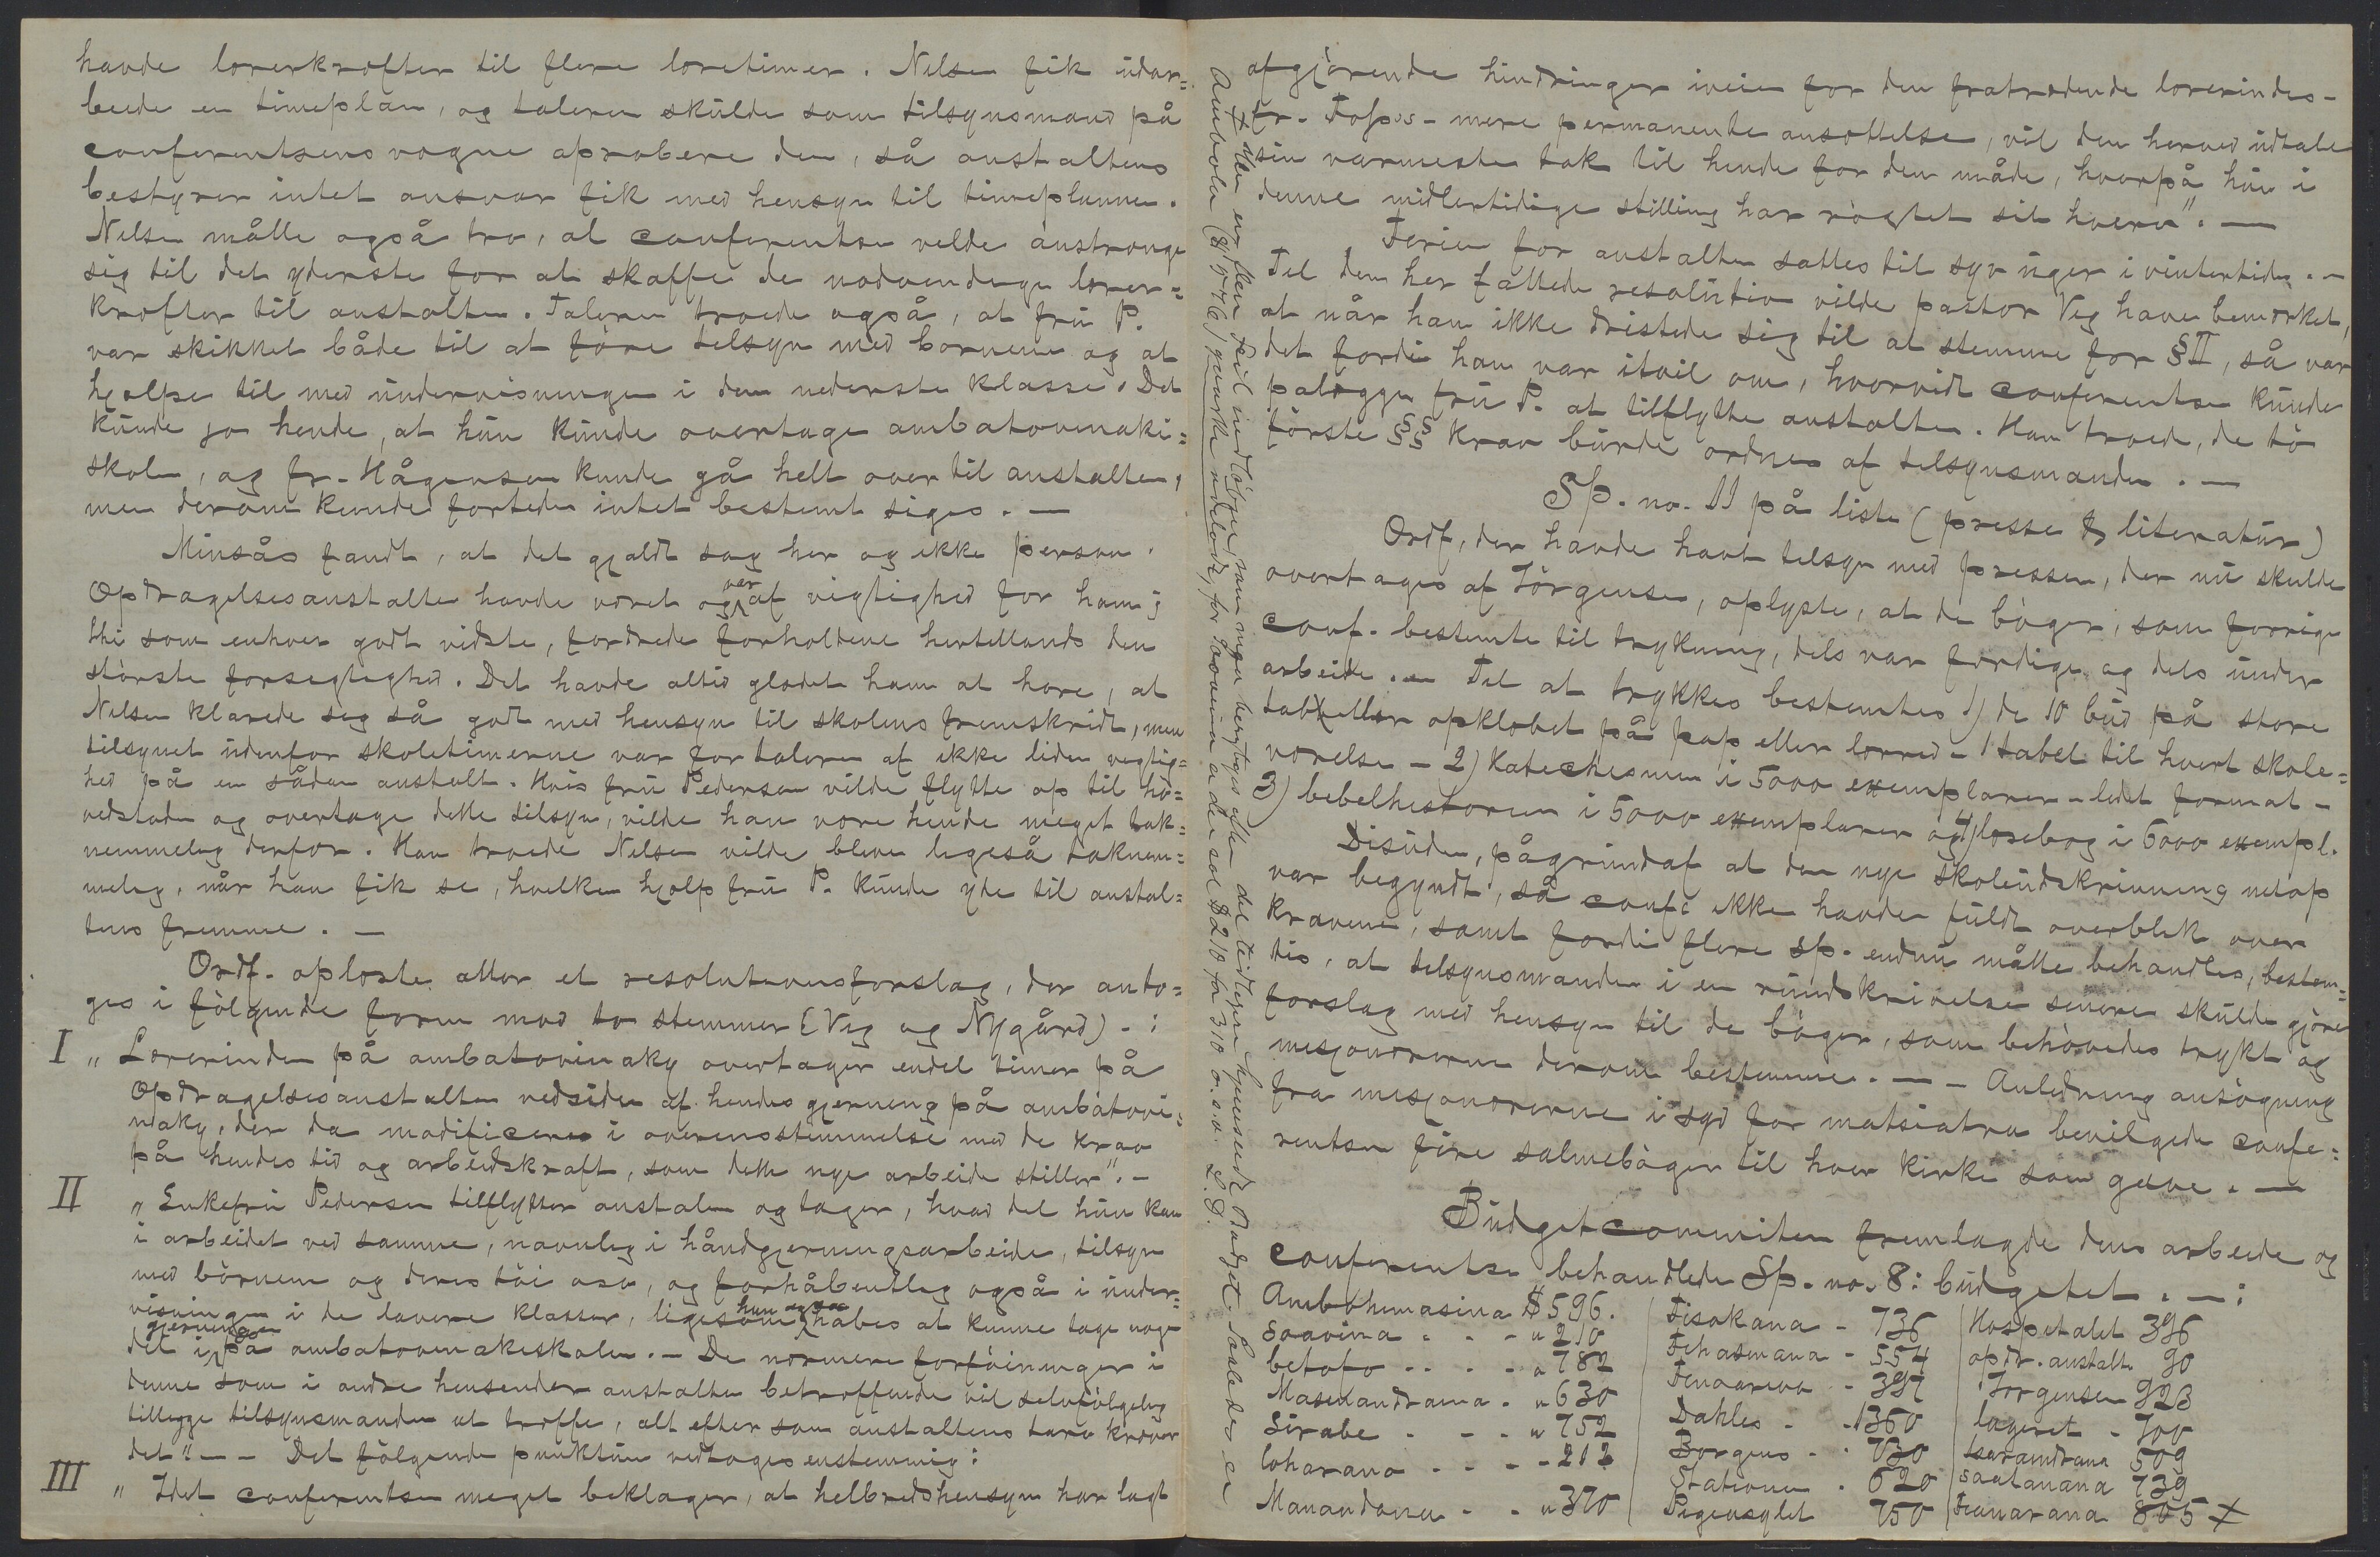 havde lærerkræfter til flere læretimer. Nilsen fik udar=
beide en timeplan, og taleren skulde som tilsynsmand på
conferentsens vægne aprobere den, så anstaltens
bestyrer intet ansvar fik med hensyn til timeplanen.
Nilsen måtte også tro, at conferentsen vilde anstrænge
sig til det yderste for at skaffe de nødvendige lærer=
kræfter til anstalten. Taleren troede også, at fru P.
var skikket både til at føre tilsyn med børnene og at
hjælpe til med undervisningen i den nederste klasse. Det
kunde jo hænde, at hun kunde overtage ambatovinaki=
skolen, og fr. Hågensen kunde gå helt over til anstalten,
men derom kunde fortiden intet bestemt siges. —
Minsås fandt, at det gjaldt sag her og ikke person.
Opdragelsesanstalten havde været og var af vigtighed for ham;
thi som enhver godt vidste, fordrede forholdene hertillands den
største forsigtighed. Det havde altid glædet ham at høre, at
Nilsen klarede sig så godt med hensyn til skolens fremskridt, men
tilsynet udenfor skoletimerne var for taleren af ikke liden vigtig=
hed på en sådan anstalt. Hvis fru Pedersen vilde flytte op til ho=
vedstaden og overtage dette tilsyn, vilde han være hende meget tak=
nemmelig derfor. Han troede Nilsen vilde blive ligeså taknem=
melig, når han fik se, hvilken hjælp fru P. kunde yde til anstal=
tens fremme. —
Ordf. oplæste atter et resolutionsforslag, der anto=
ges i følgende form mod to stemmer (Vig og Nygård) - :
I „ Lærerinden på ambatovinaky overtager endel timer på
Opdragelsesanstalten vedsiden af hendes gjerning på ambatovi=
naky, der da modificeres i overensstemmelse med de krav
på hendes tid og arbeidskraft, som dette nye arbeide stiller". -
II „ Enkefru Pedersen tilflytter anstalen og tager, hvad del hun kan
i arbeidet ved samme, navnlig i håndgjerningsarbeide, tilsyn
med børnene og deres tøi osv, og forhåbentlig også i under=
visningen i de lavere klasser, ligesom hun også håbes at kunne tage nogen
del i gjerningen på ambatovinakiskolen. - De nærmere forføininger i
denne som i andre hensender anstalten betræffende vil selvfølgelig
tillægge tilsynsmanden at træffe, alt efter som anstaltens tarv kræver
det". — - Det følgende punktum vedtoges enstemmig:
III „ Idet conferentsen meget beklager, at helbredshensyn har lagt
afgjørende hindringer iveien for den fratrædende lærerindes-
fr. Foss's - mere permanente ansættelse, vil den herved udtale
sin varmeste tak til hende for den måde, hvorpå hun i
denne midlertidige stilling har røgtet sit hverv". —
Ferien for anstalten sattes til syv uger i vintertiden. -
Til den her fattede resolution vilde pastor Vig have bemærket,
at når han ikke dristede sig til at stemme for § II, så var
det fordi han var itvil om, hvorvidt conferentsen kunde
pålægge fru P. at tilflytte anstalten. Han troede, de to
første §§ krav burde ordnes af tilsynsmanden. —
Sp. no. 11 på liste (presse & literatur)
Ordf, der havde havt tilsyn med pressen, der nu skulde
overtages af Jørgensen, oplyste, at de bøger, som forrige
conf. bestemte til trykning, dels var færdige og dels under
arbeide. — Til at trykkes bestemtes 1) de 10 bud på store
tabeller opklæbet på pap eller lærred - 1 tabel til hvert skole=
værelse - 2) Katechismen i 5000 exemplarer - lidet format -
3) bibelhistorien i 5000 exemplarer og 4) læsebog i 5000 exempl.
Disuden, pågrundaf at den nye skoleudskrivning netop
var begyndt, så conf. ikke havde fuldt overblik over
kravene, samt fordi flere sp. endnu måtte behandles, bestem=
tes, at tilsynsmanden i en rundskrivelse senere skulde gjøre
forslag med hensyn til de bøger, som behøvedes trykt og
misjonærerne derom bestemme. — - Anledning ansøgning
fra misjonærerne i syd for matsiatra bevilgede confe=
rentsen fire salmebøger til hver kirke som gave. —
Budgetcommiteen fremlagde dens arbeide og
conferentsen behandlede Sp. no. 8: budgetet. — :
Ambohimasina $ 596. | Fisakana - 736 | Hospitalet 396
Soavina - - - „ 210 | Fihasinana - 554 | opdr. anstalt. 90
betafo - - - - „ 782 | Fenoarivo - 397 | Jørgensen 923
Masinandraina. „ 630 | Dahles - - 1360 | lageret - 700
Sirabe - - - „ 752 | Borgens - - 730 | tsaraindrana 509
loharano - - - - 212 | Stationen - 620 | soatanana 739
Manandona - - „ 370 | Pigeasylet 750 | Fianarana 805 X
X Her er flere feil indløbne, som
Ambohi (8 596) ganske udeladt, for Soavina a der sat D 210 for 310 o.s.v. L. D.